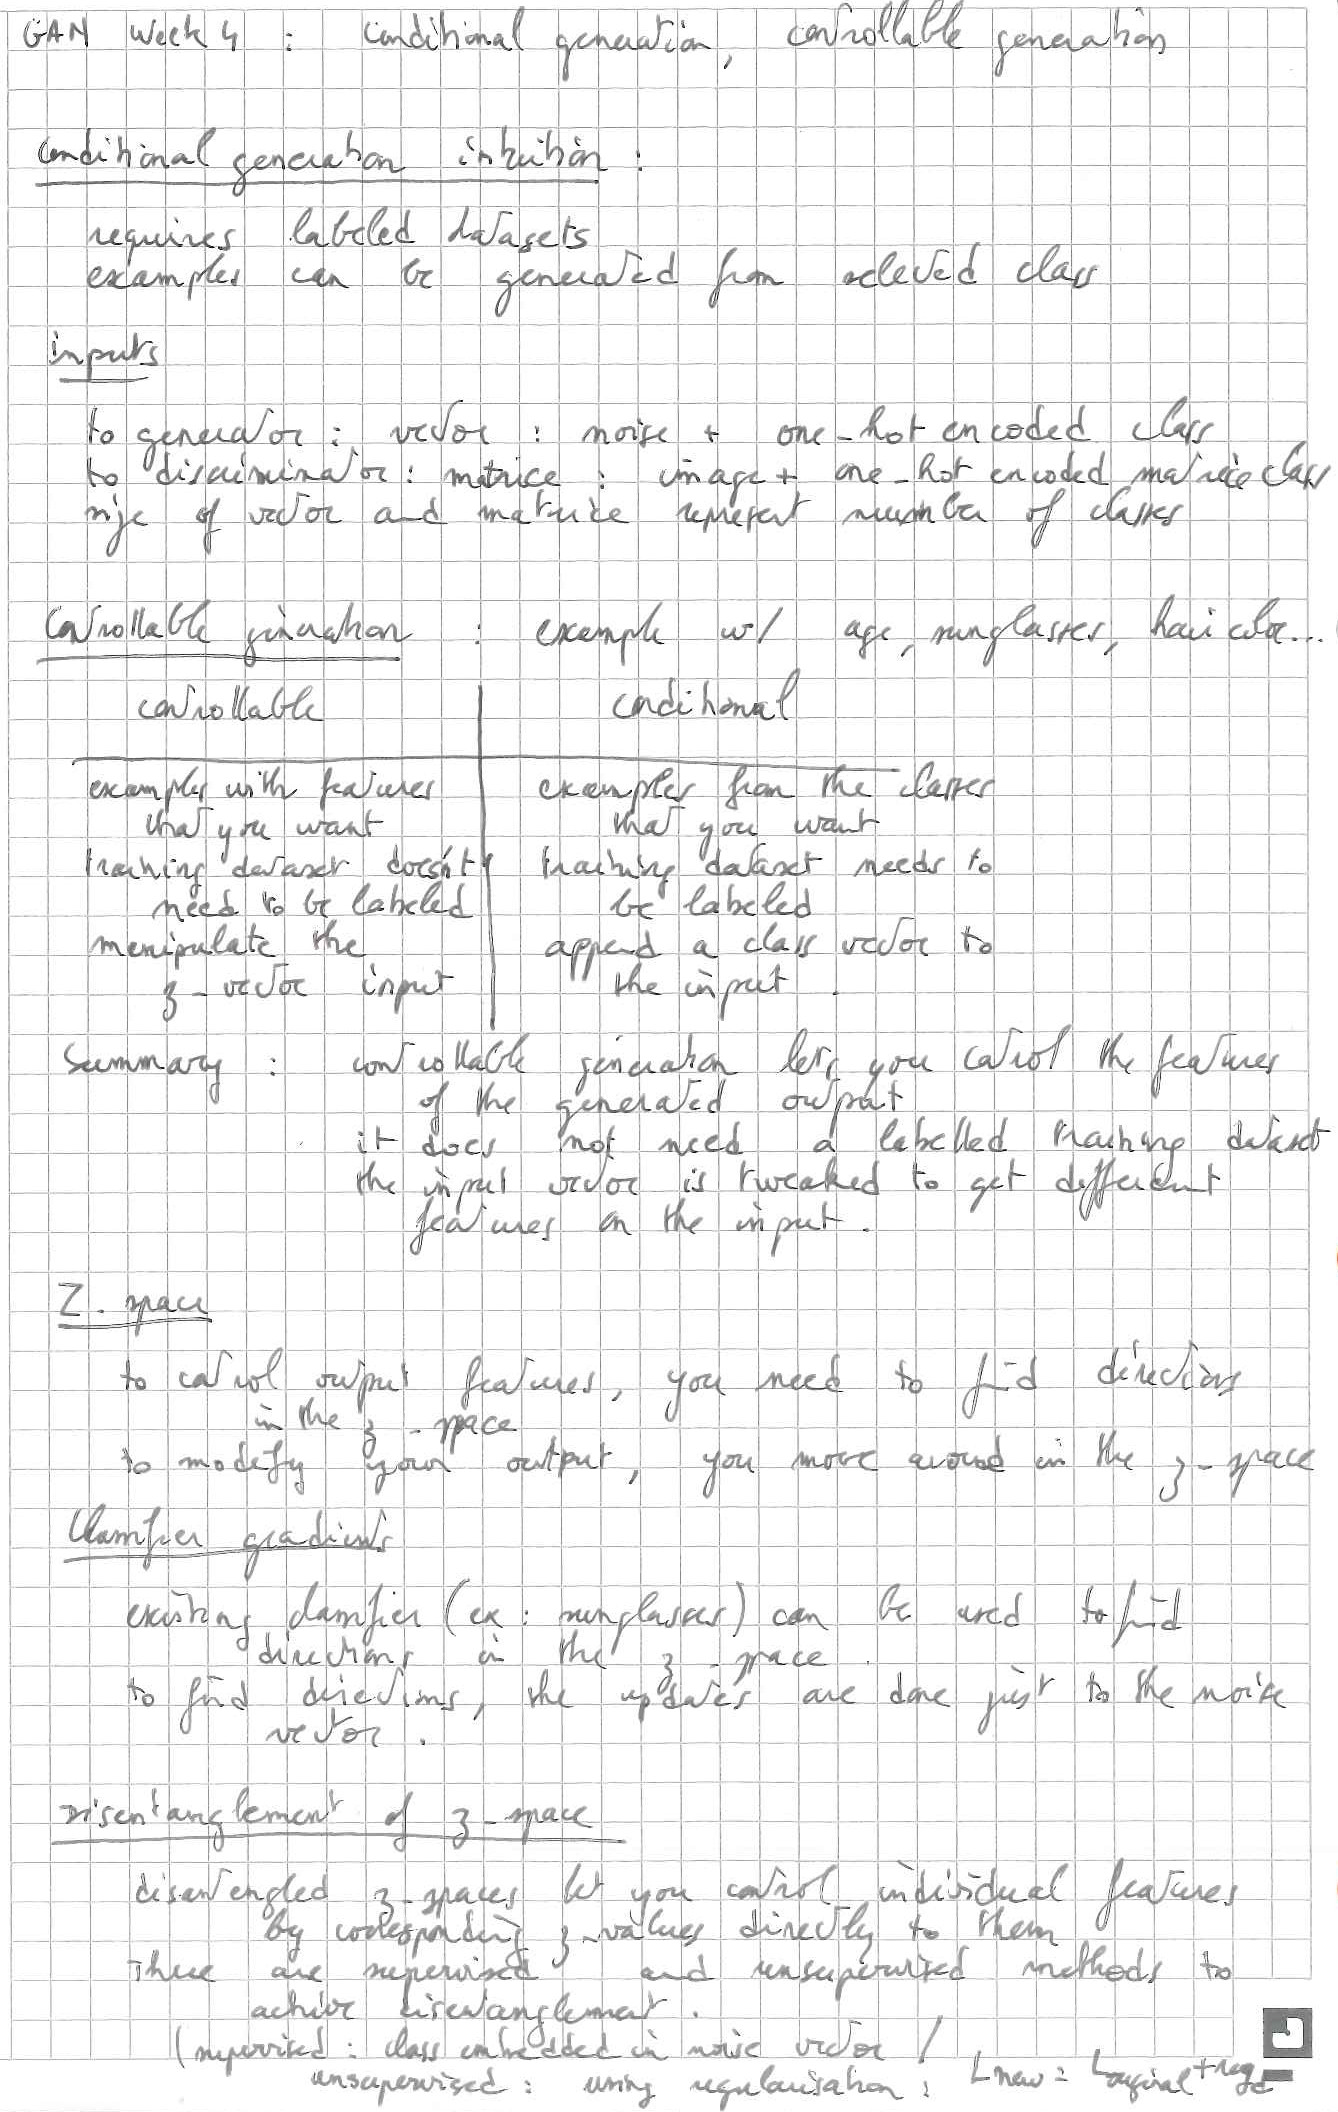 GAN Week 4 : Conditional generation, controllable generation
Conditional generation intuition :
requires labeled datasets
examples can be generated from selected class
inputs
to generator : vector : noise + one-hot encoded class
to discriminator : matrice : image + one-hot encoded matrice class
size of vector and matrice represent number of classes
Controllable génération : example w/ age, sunglasses, hair color...
controllable conditional
examples with features examples from the classes
that you want that you want
training dataset doesn't training dataset needs to
need to be labeled be labeled
manipulate the append a class vector to
z-vector input the input .
Summary : controllable génération lets you control the features
of the generated output
it does not need a labelled training dataset
the input vector is tweaked to get different
features on the input .
Z-space
to control output features, you need to find directions
in the z-space
to modify your output, you move around in the z-space
Classifier gradients
existing classifier (ex : sunglasses) can be used to find
directions in the z-space .
to find directions, the updates are done just to the noise
vector .
Disentanglement of z-space
disentengled z-spaces let you control individual features
by corresponding z-values directly to them
There are supervised and unsupervised methods to
achive disentanglement .
(supervised : class embedded in noise vector /
unsupervised : using regularisation : Lnew = Loriginal + reg